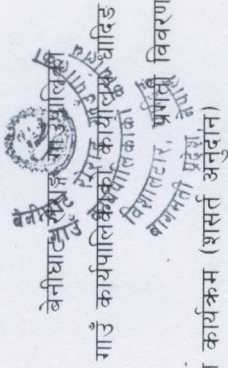 बेनीघाट रोराङ्ग गाउँपालिका
गाउँ कार्यपालिकाको कार्यालय धादिङ
प्रगति विवरण
कार्यक्रम (शसर्त अनुदान)
बेनीघाट रोराङ्ग गाउँपालिका
गाउँ कार्यपालिकाको कार्यालय
विशालटार,
बागमती प्रदेश, नेपाल